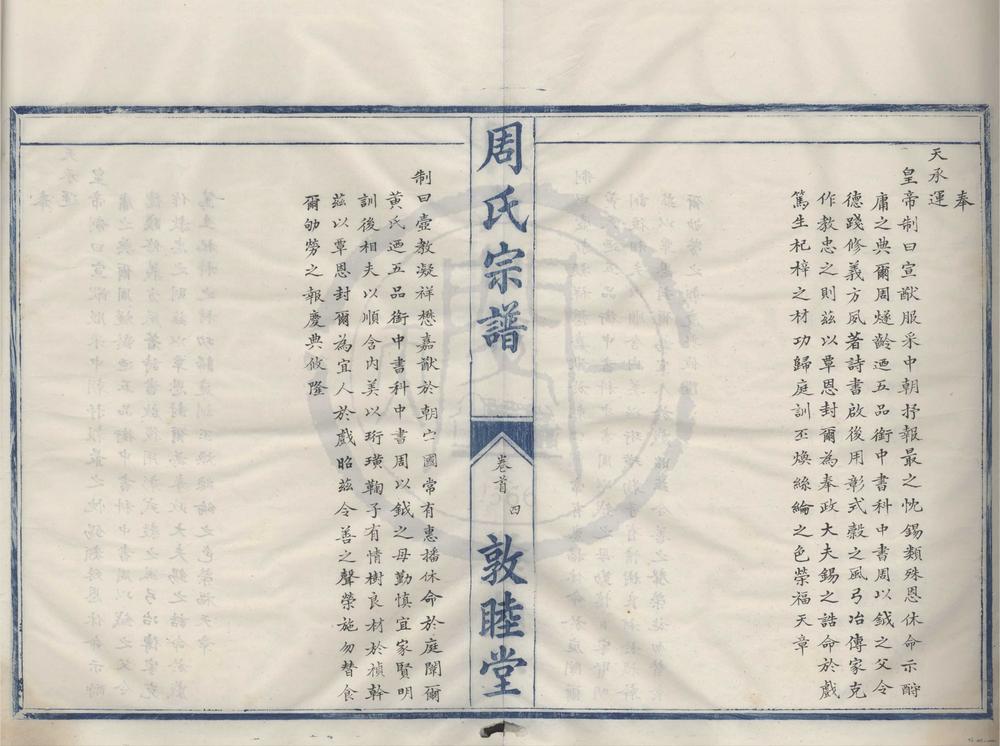 奉
天承運
皇帝制曰宣猷服采中朝抒報最之忱錫類殊恩休命示酧
庸之典爾周燧齡迺五品銜中書科中書周以鉞之父令
德踐修義方夙著詩書啟後用彰式穀之風弓冶傳家克
作教忠之則茲以覃恩封爾為奉政大夫錫之誥命於戲
篤生杞梓之材功歸庭訓丕煥絲綸之色榮福天章
周氏宗譜
卷首
四
敦睦堂
制曰壺教凝祥懋嘉猷於朝宁國常有惠播休命於庭闈爾
黃氏迺五品銜中書科中書周以鉞之母勤慎宜家賢明
訓後相夫以順含內美以珩璜鞠子有情樹良材於楨幹
茲以覃恩封爾為宜人於戲昭茲令善之聲榮施勿替食
爾劬勞之報慶典攸隆